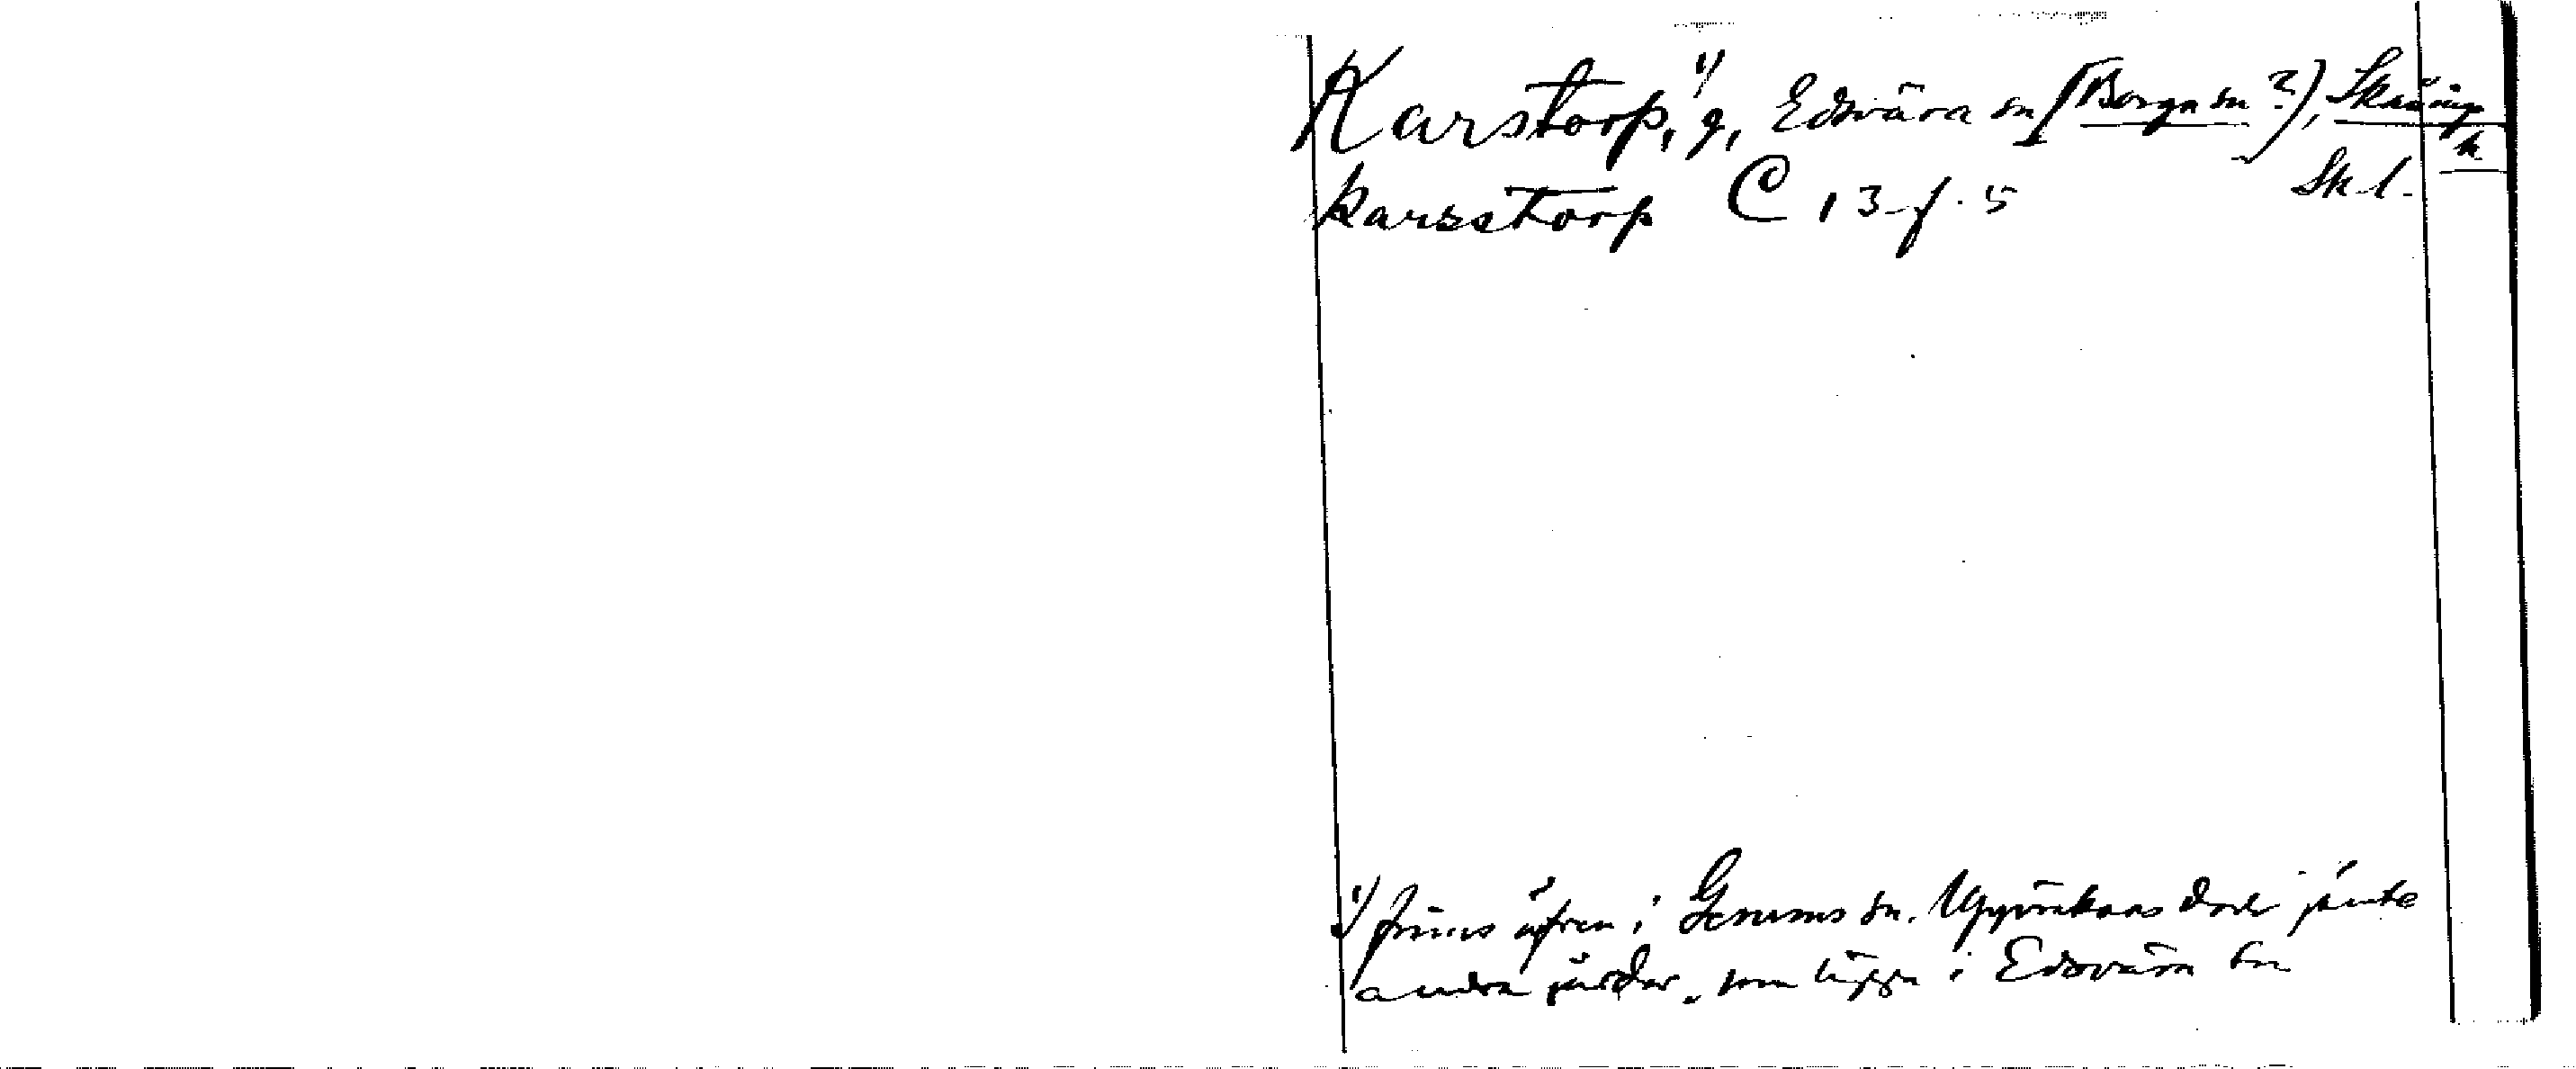 Karstorp,¹⁾ g, Edsvära sn (Borga sn?), Skånings h
karsstorp C 13 f. 5 Sk l.
1) finns äfven i Gerums sn. Uppräknas dock jämte
andra gårdar, som ligga i Edsvära sn